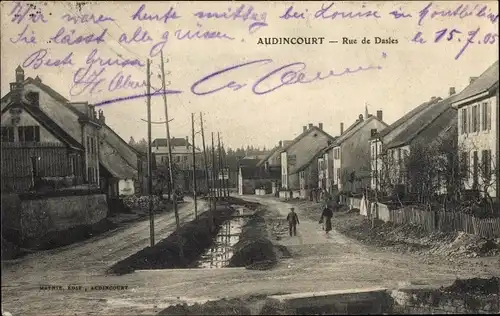 Wir waren heute Mittag bei Louise in Montbéliard
Sie lässt alle grüssen. le 15.7.05
Beste Grüsse
AUDINCOURT — Rue de Dasles
MATHIE, EDIT., AUDINCOURT